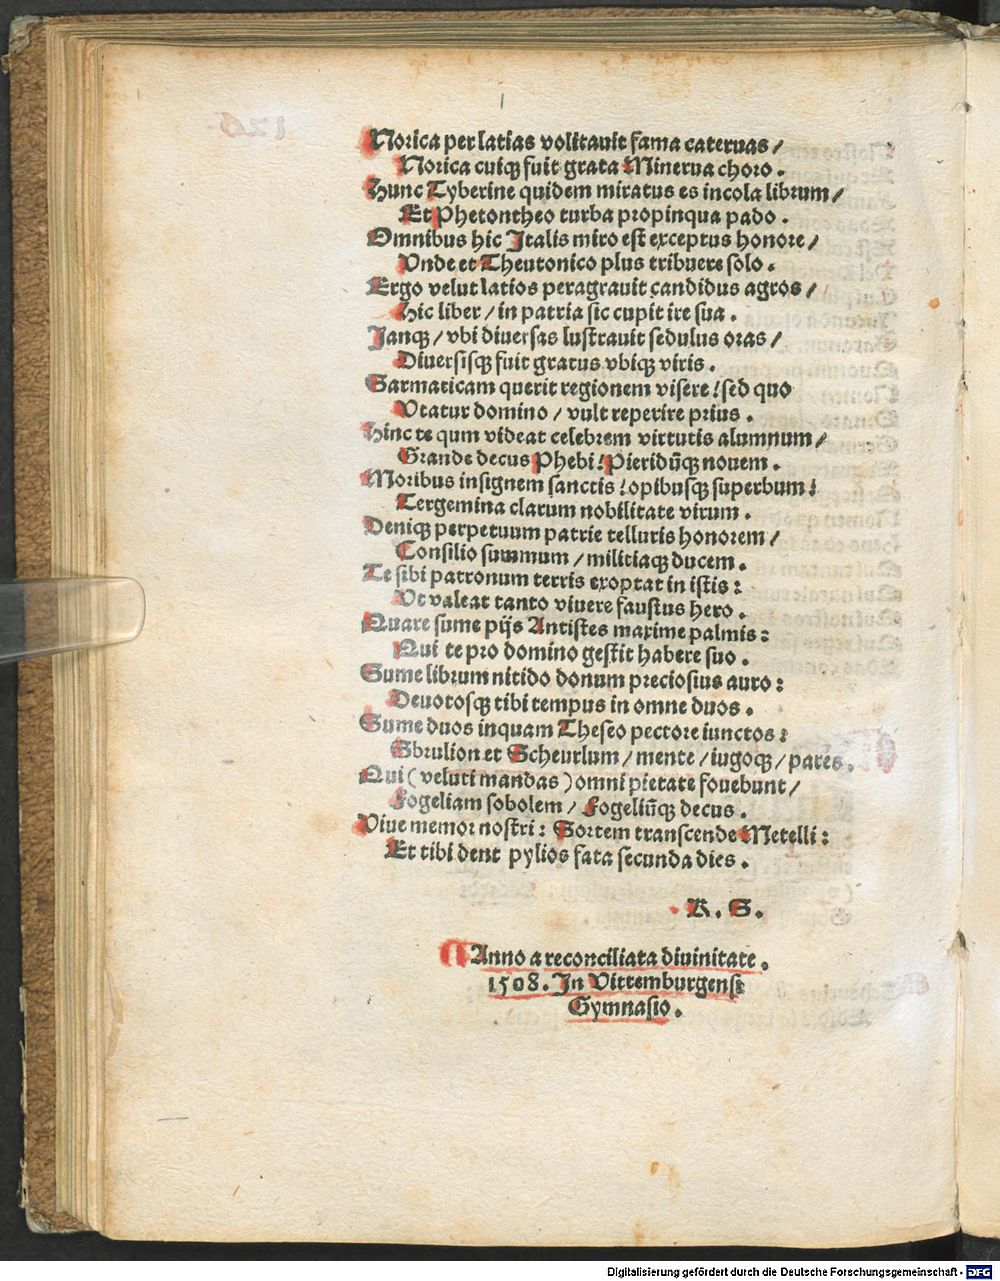 Norica per latias volitauit fama cateruas /
Norica cuiqꝫ fuit grata Minerua choro .
Hunc Tyberine quidem miratus es incola librum /
Et Phetontheo turba propinqua pado .
Omnibus hic Italis miro est exceptus honore /
Vnde et Theutonico plus tribuere solo .
Ergo velut latios peragrauit candidus agros /
Hic liber / in patria sic cupit ire sua .
Janqꝫ / vbi diuersas lustrauit sedulus oras /
Diuersisqꝫ fuit gratus vbiqꝫ viris .
Sarmaticam querit regionem visere ! sed quo
Vtatur domino / vult reperire prius .
Hinc te qum videat celebrem virtutis alumnum /
Grande decus Phebi ! Pieridūqꝫ nouem .
Moribus insignem sanctis ! opibusqꝫ superbum !
Tergemina clarum nobilitate virum .
Deniqꝫ perpetuum patrie telluris honorem /
Consilio summum / militiaqꝫ ducem .
Te sibi patronum terris exoptat in istis :
Vt valeat tanto viuere faustus hero .
Quare sume pijs Antistes maxime palmis :
Qui te pro domino gestit habere suo .
Sume librum nitido donum preciosius auro :
Deuotosqꝫ tibi tempus in omne duos .
Sume duos inquam Theseo pectore iunctos :
Sbrulion et Scheurlum / mente / iugoqꝫ / pares .
Qui ( veluti mandas ) omni pietate fouebunt /
Fogeliam sobolem / Fogeliūqꝫ decus .
Viue memor nostri : Sortem transcende Metelli :
Et tibi dent pylios fata secunda dies .
R . S .
Anno a reconciliata diuinitate .
1508 . In Vittemburgensi
Gymnasio .
Digitalisierung gefördert durch die Deutsche Forschungsgemeinschaft - DFG